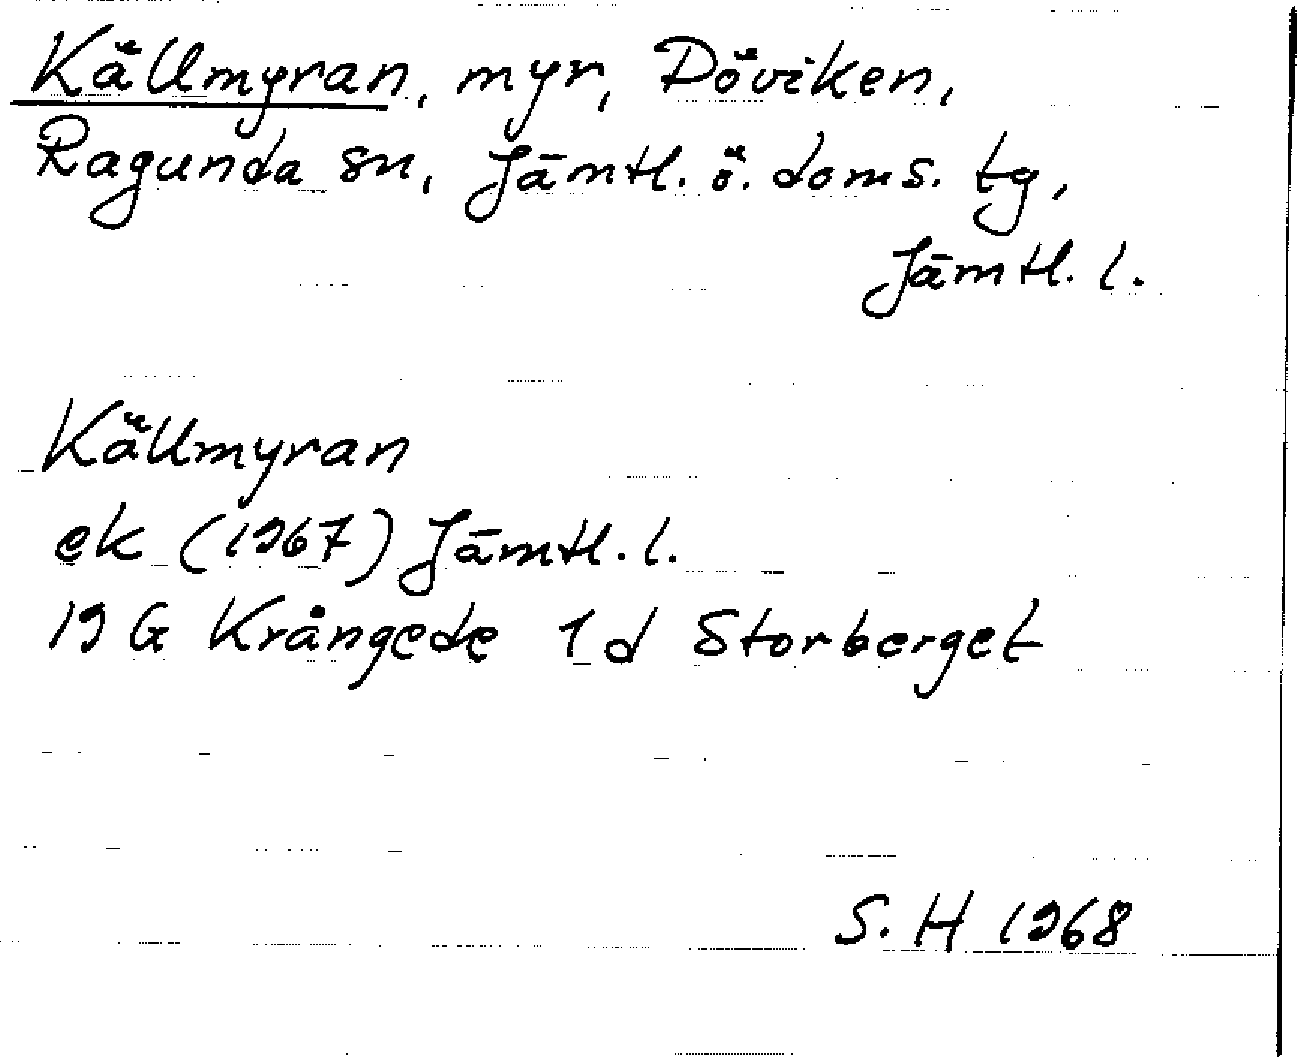 Källmyran, myr, Döviken,
Ragunda sn, Jämtl. ö. doms. tg,
Jämtl. l.
Källmyran
ek (1967) Jämtl. l.
19 G Krångede 1 d Storberget
S. H 1968